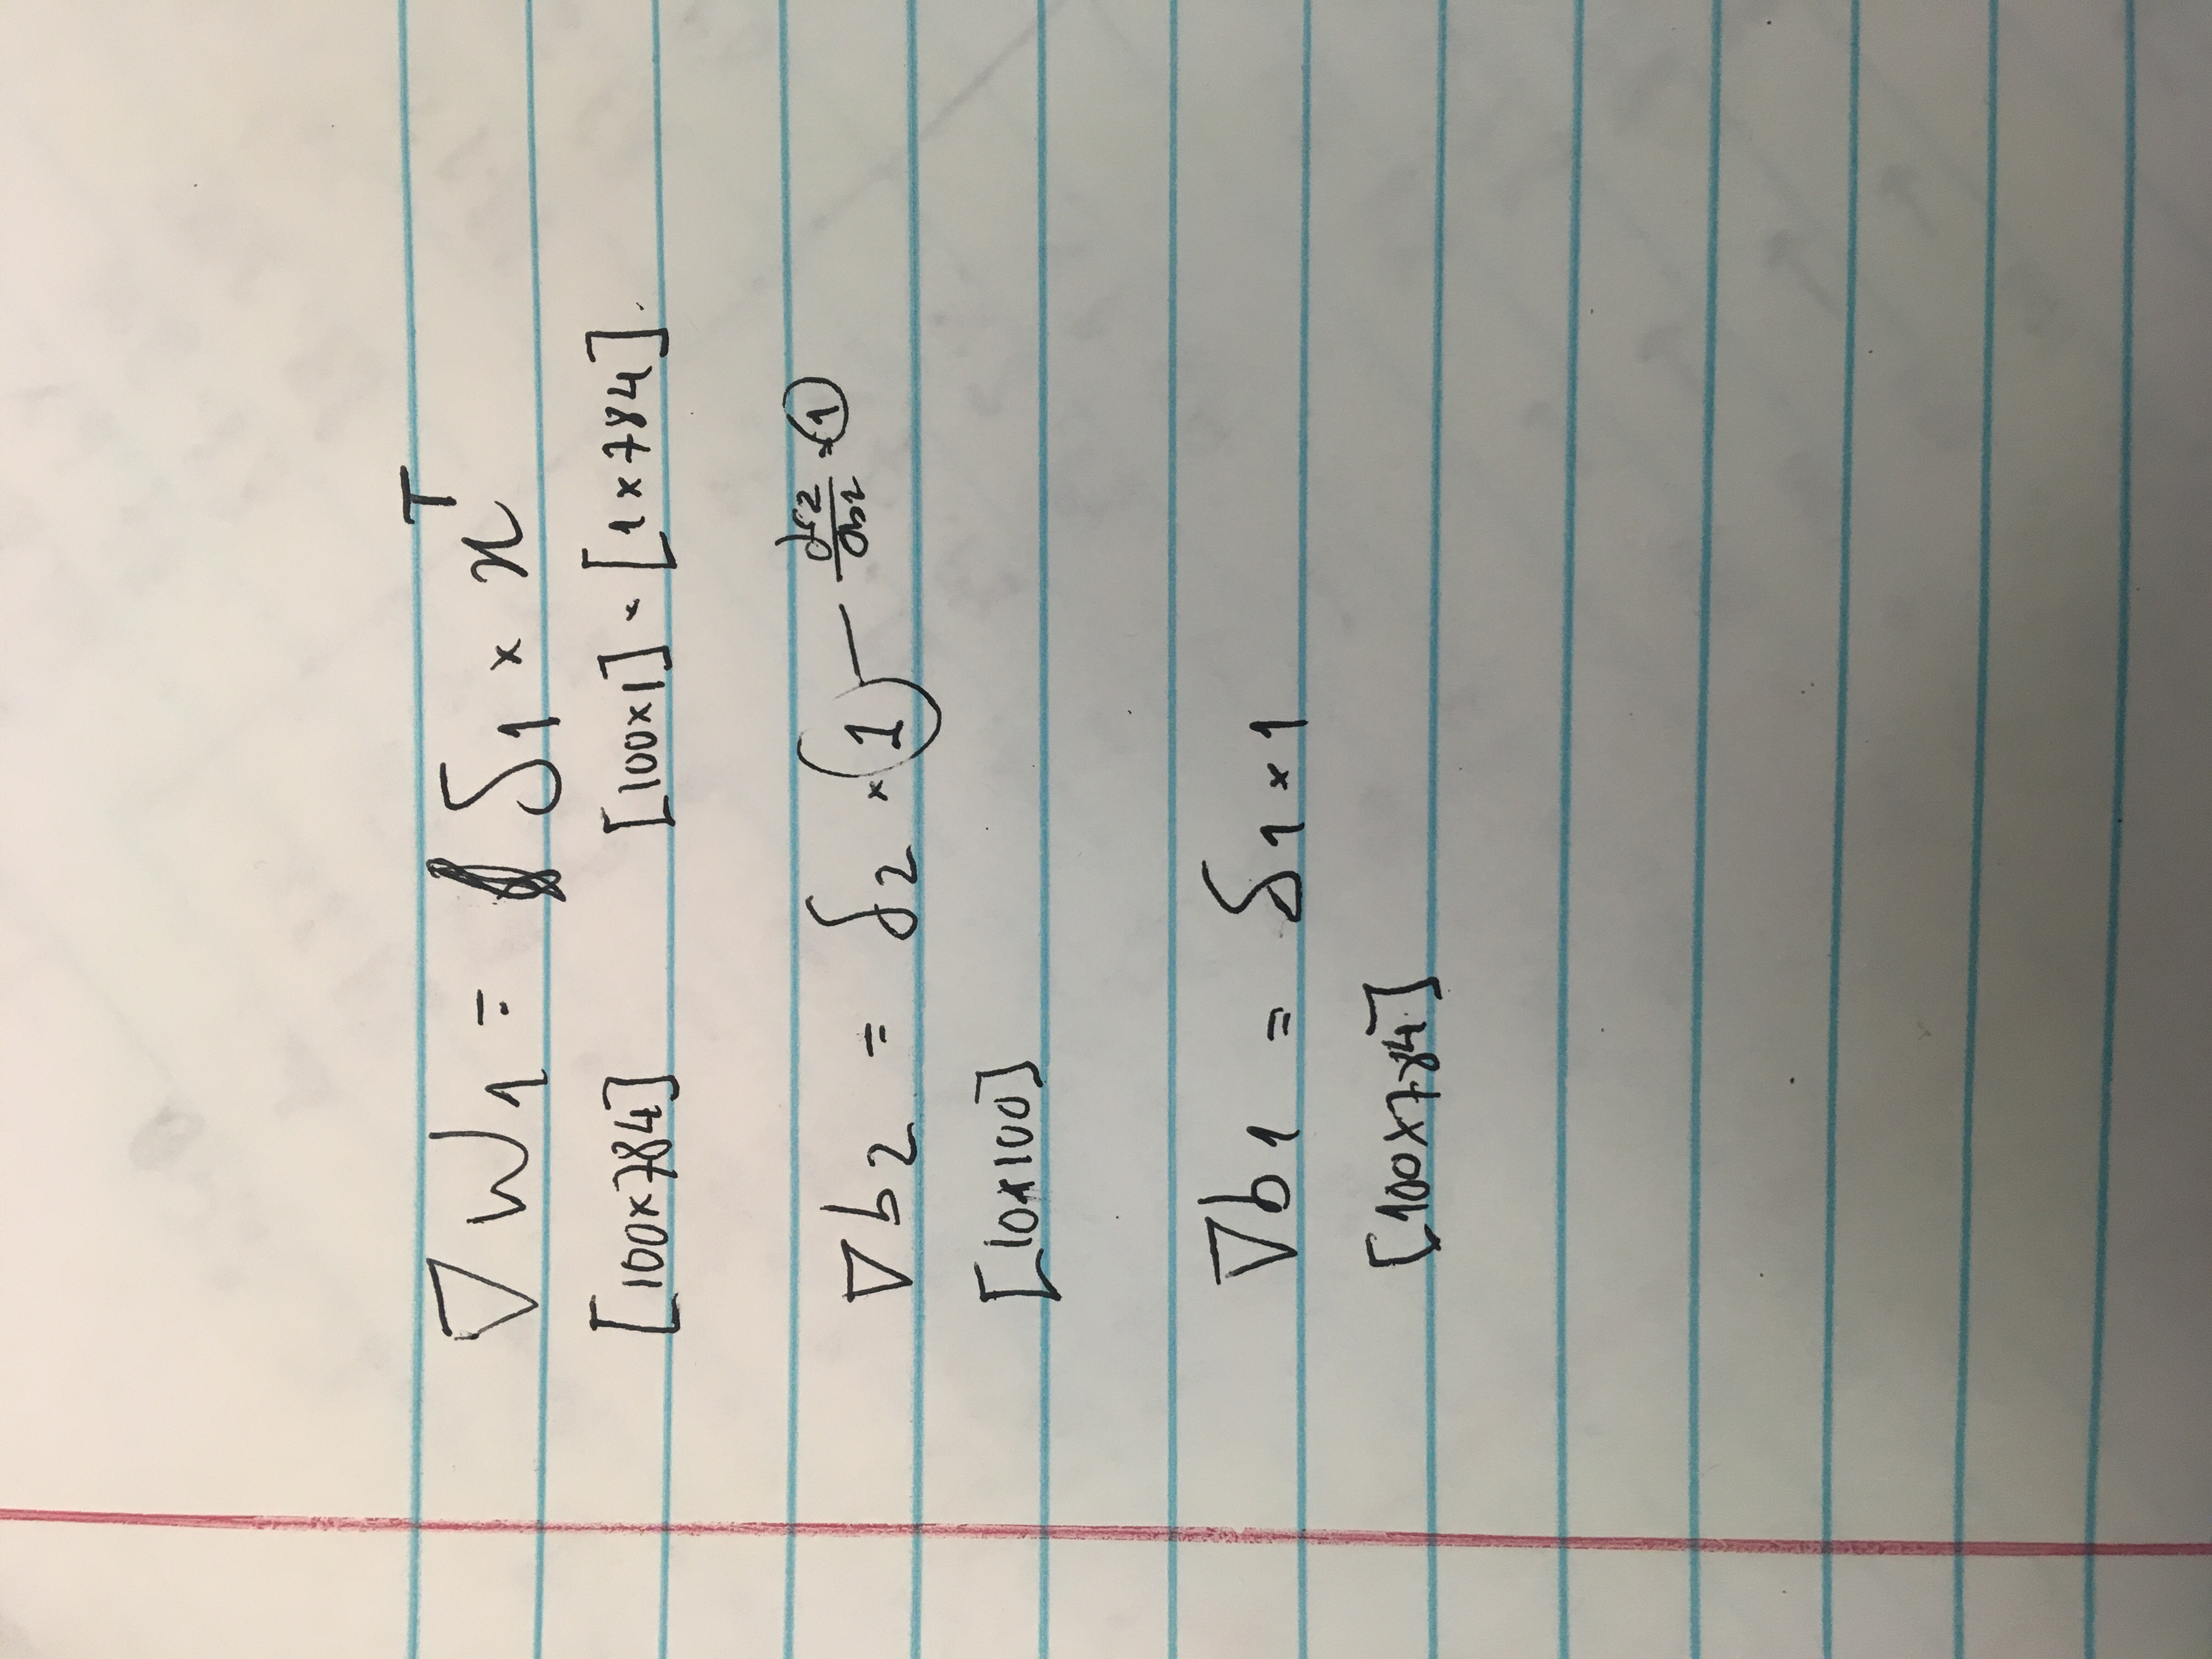 ∇ W1 = δ1 × x^T
[100×784] [100×1] × [1×784].
∇ b2 = δ2 × 1 — ∂z2/∂b2 = 1
[10×100]
∇ b1 = δ1 × 1
[100×784]